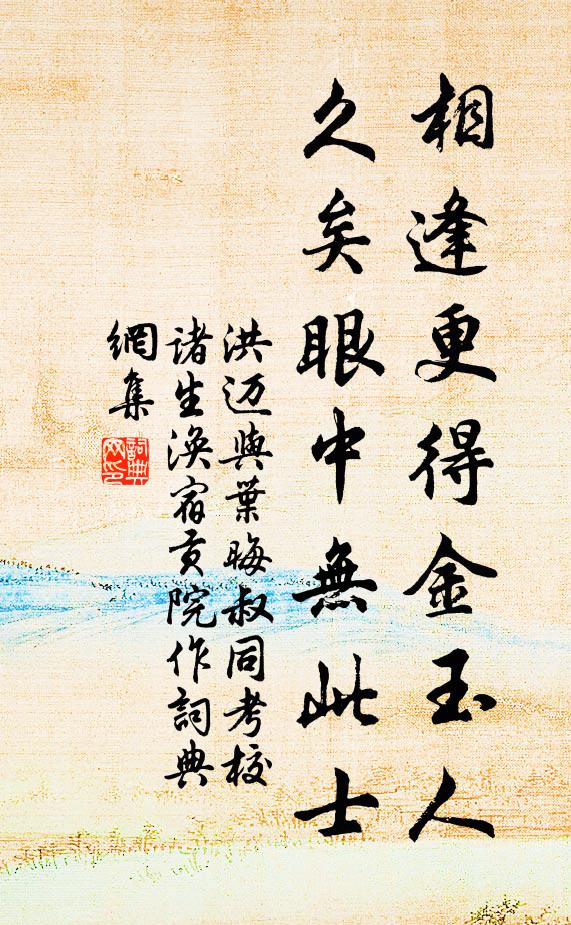 相逢更得金玉人
久矣眼中無此士
洪迈與葉晦叔同考校
諸生渙宿貢院作詞典
網集
詞典